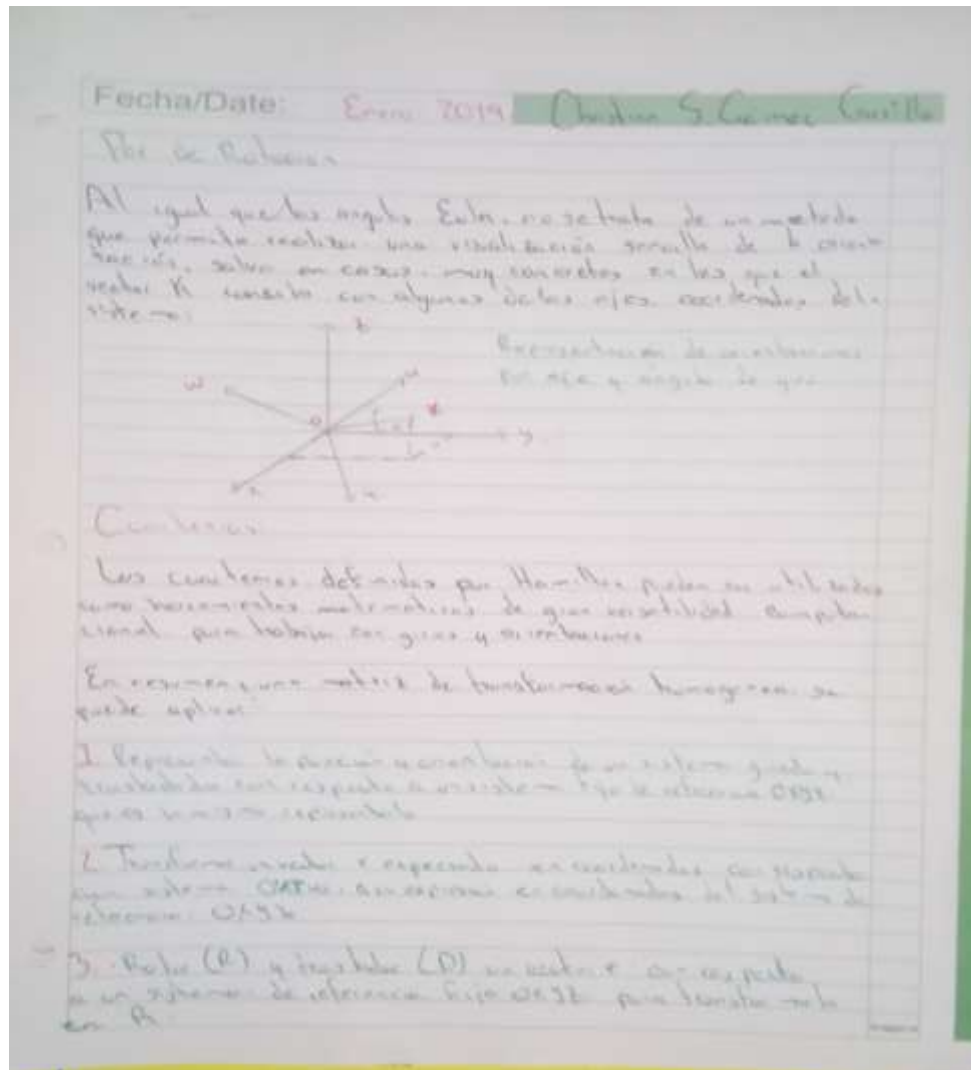 Fecha/Date: Enero 2019 Christian S. Gómez
Par de Rotacion
Al igual que los angulos Euler, no se trata de un metodo
que permita realizar una visualización sencilla de la orien
tación, salvo en casos muy concretos en los que el
vector K coincida con algunos de los ejes coordenados del
sistema.
z
Representacion de orientacion
por eje y angulo de giro
w
v
K
O
y
x
u
Cuaternios
Los cuaternios definidos por Hamilton pueden ser utilizados
como herramientas matematicas de gran versatilidad computa
cional para trabajar con giros y orientaciones
En resumen, una matriz de transformación homogenea se
puede aplicar
1. Representar la posición y orientacion de un sistema girado y
trasladado con respecto a un sistema fijo de referencia OXYZ
que es
2. Transformar un vector r expresado en coordenadas con respecto
a un sistema OUVW a su expresion en coordenadas del sistema de
referencia OXYZ
3. Rotar (R) y trasladar (D) un vector r con respecto
a un sistema de referencia fijo OXYZ para transformarlo
en R